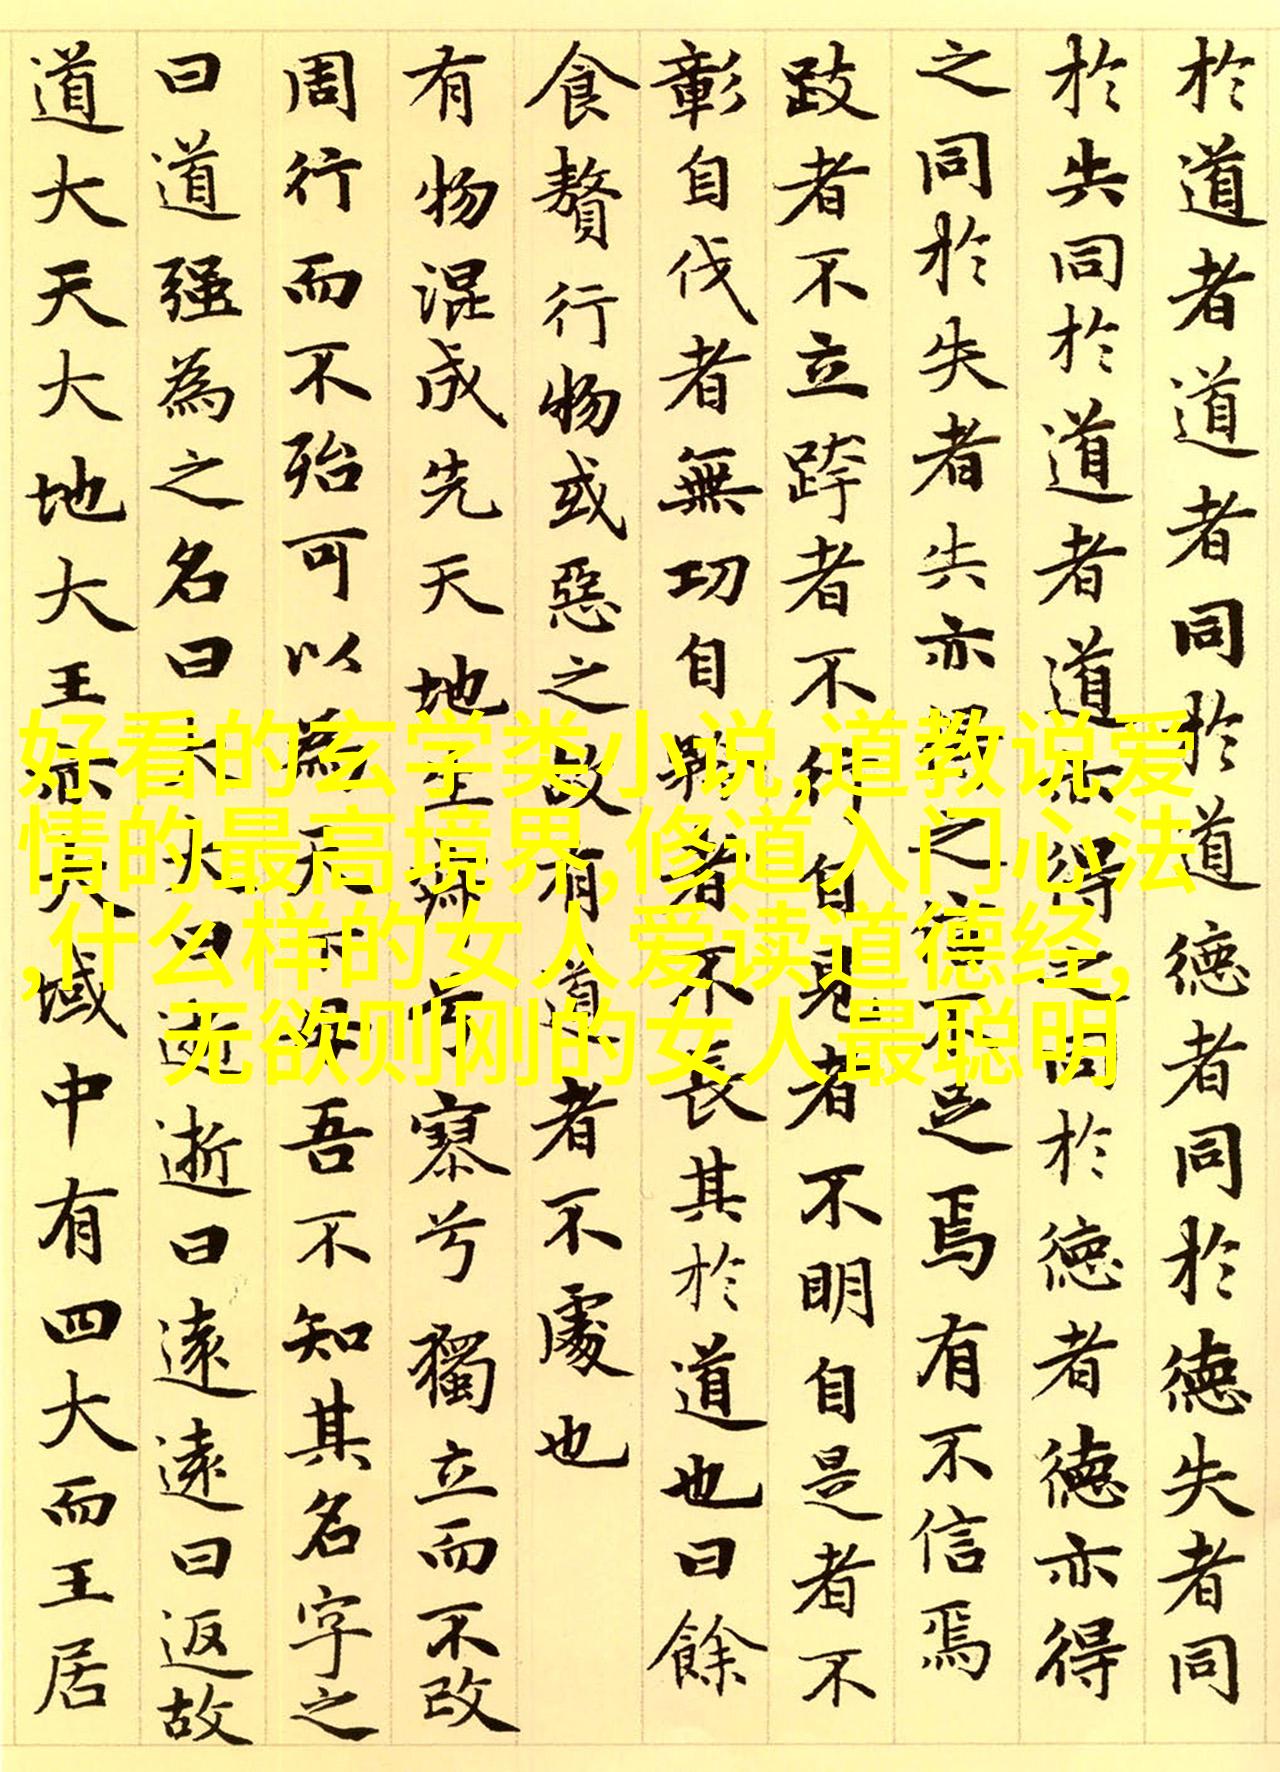 於道者道者同於道德者同於德失者同
於失同於道者道亦得之同於德者德亦得
之同於失者失亦得之信不足焉有不信焉
跂者不立跨者不行自見者不明自是者不
彰自伐者無功自矜者不長其於道也曰餘
食贅行物或惡之故有道者不處也
有物混成先天地生寂兮寥兮獨立而不改
周行而不殆可以為天下母吾不知其名字之
曰道强為之名曰大大曰逝逝曰遠遠曰返故
道大天大地大王亦大域中有四大而王居
好看的玄学类小说,道教说爱
情的最高境界,修道入门心法
,什么样的女人爱读道德经,
无欲则刚的女人最聪明